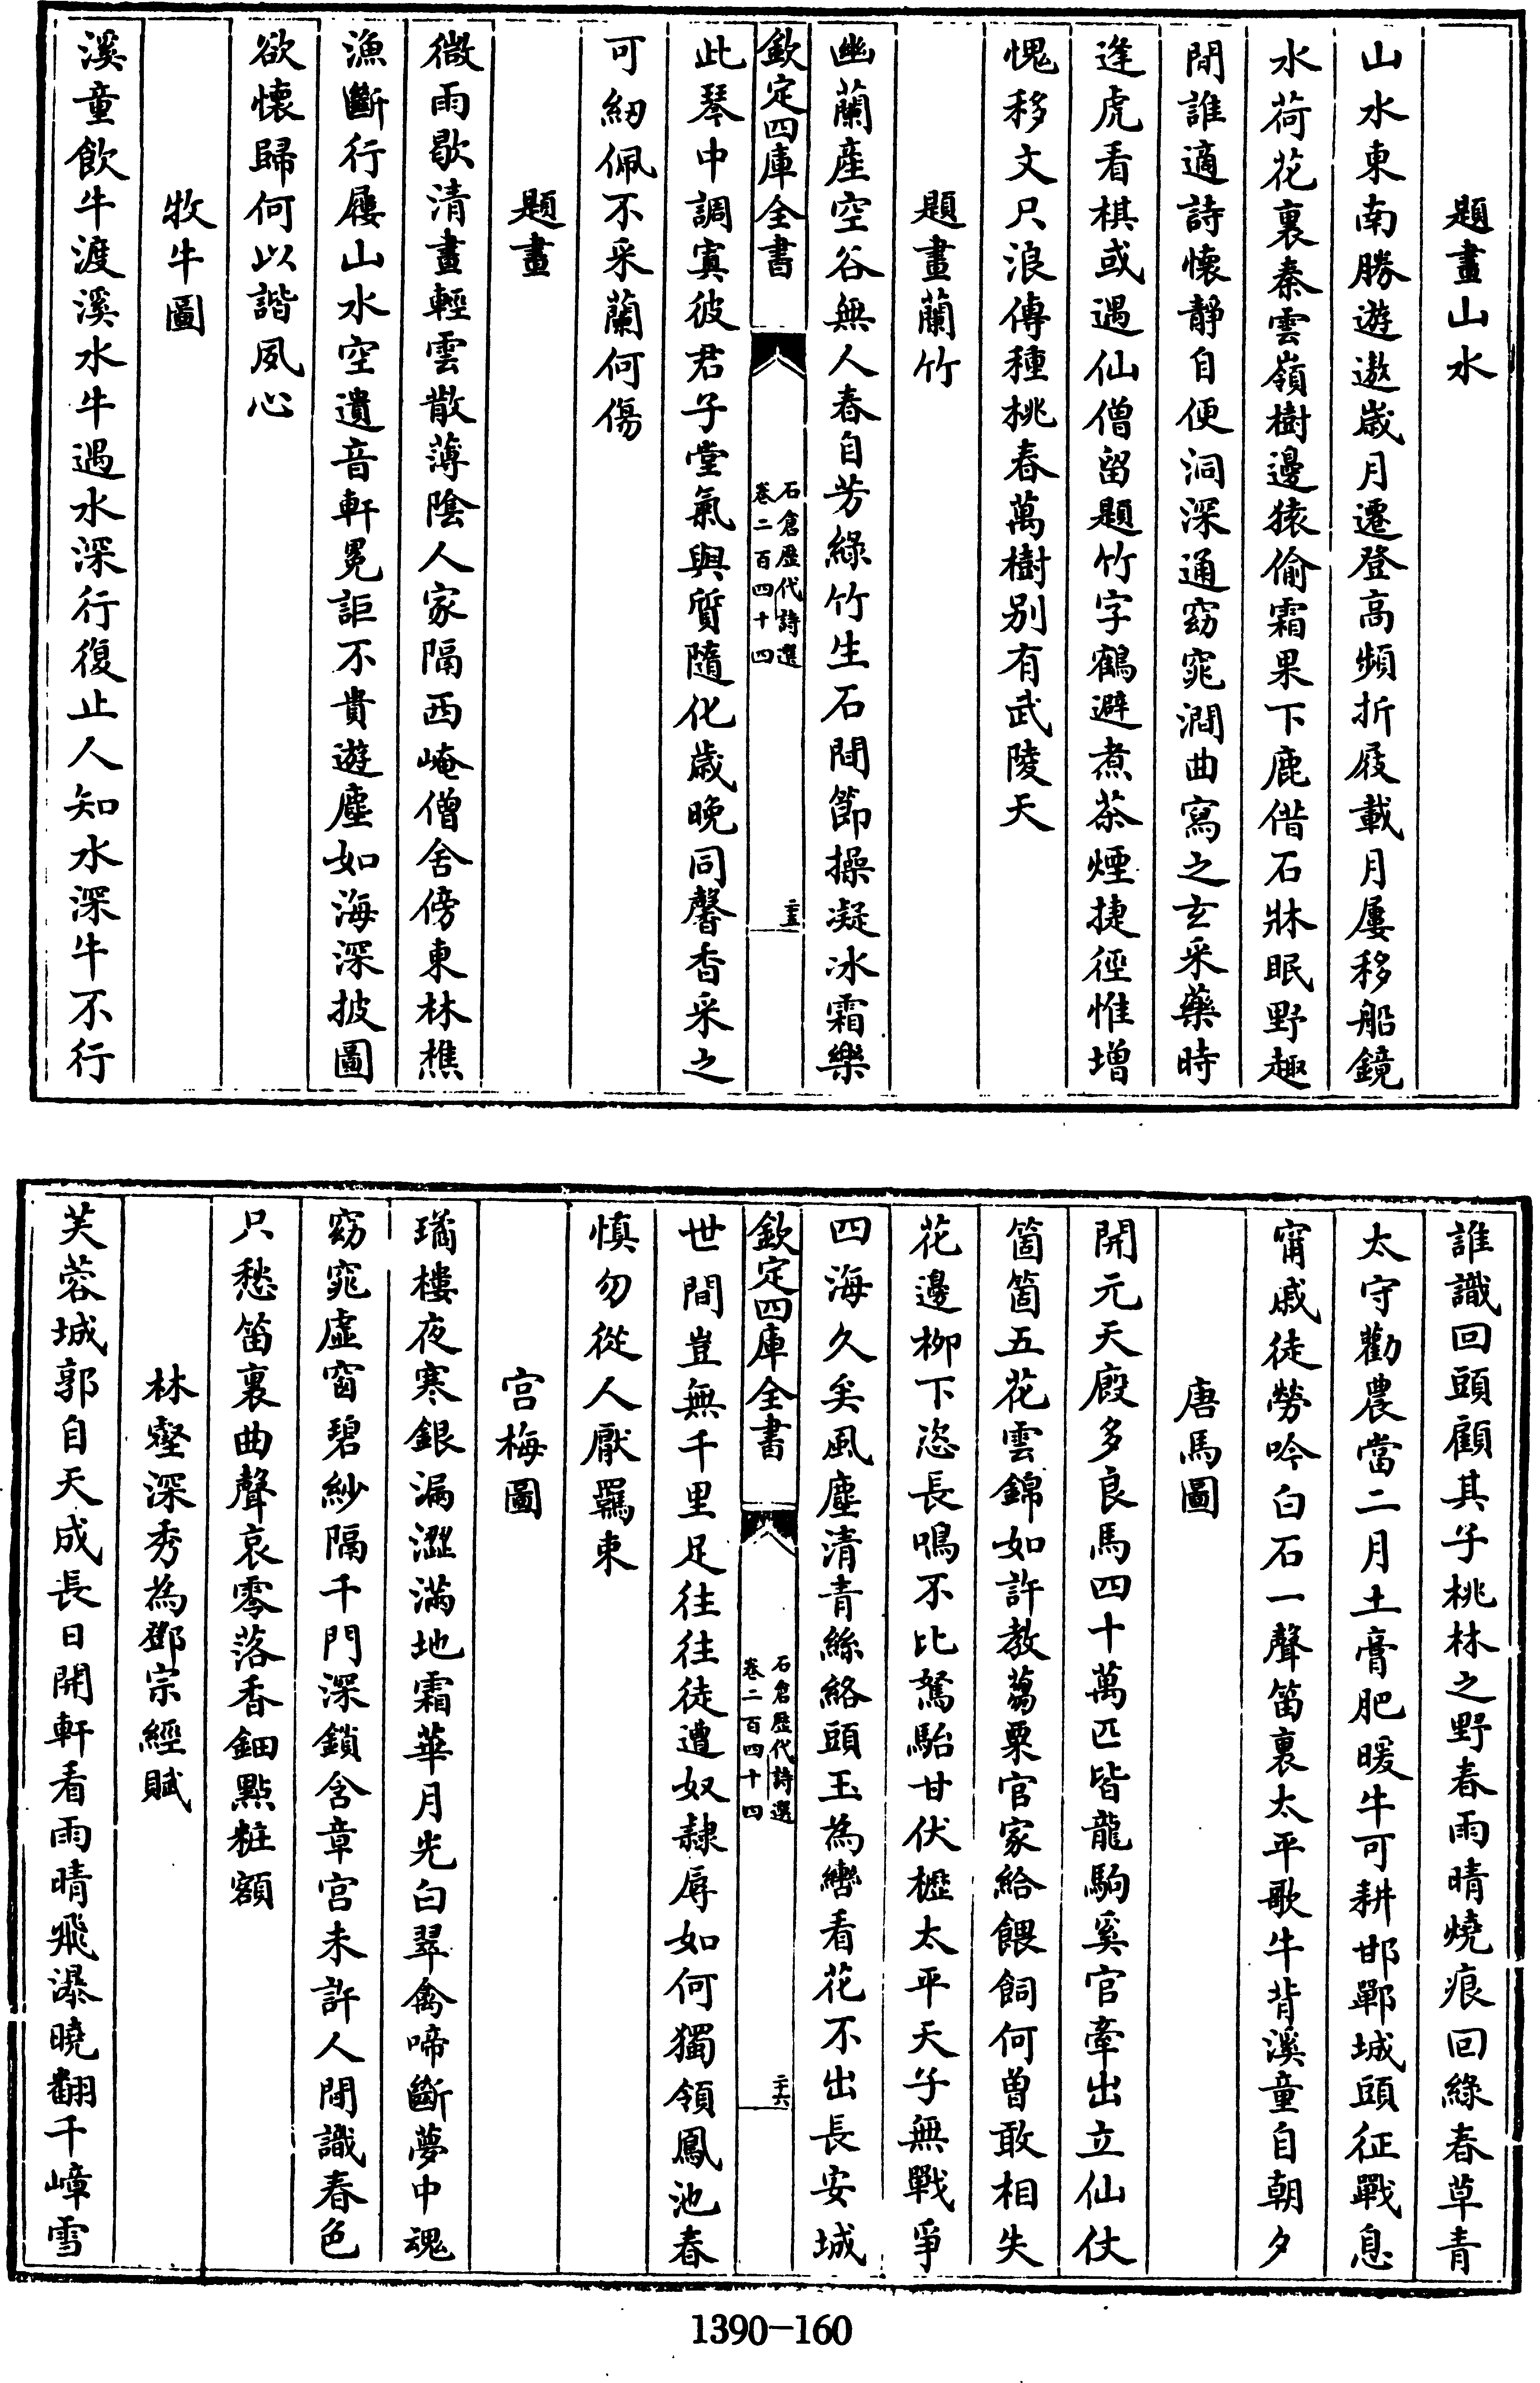 題畫山水
山水東南勝遊遨歲月遷登高頻折屐載月屢移船鏡
水荷花裏秦雲嶺樹邊猿偷霜果下鹿借石牀眠野趣
閒誰適詩懷靜自便洞深通窈窕澗曲寫之玄采藥時
逢虎看棋或遇仙僧留題竹字鶴避煮茶煙捷徑惟增
愧移文只浪傳種桃春萬樹别有武陵天
題畫蘭竹
幽蘭産空谷無人春自芳綠竹生石間節操凝冰霜樂
欽定四庫全書
石倉歷代詩選
卷二百四十四
二十五
此琴中調寘彼君子堂氣與質隨化歲晚同馨香采之
可紉佩不采蘭何傷
題畫
微雨歇清晝輕雲散薄陰人家隔西崦僧舍傍東林樵
漁斷行屧山水空遺音軒冕詎不貴遊塵如海深披圖
欲懷歸何以諧夙心
牧牛圖
溪童飲牛渡溪水牛遇水深行復止人知水深牛不行
誰識回頭顧其子桃林之野春雨晴燒痕回綠春草青
太守勸農當二月土膏肥暖牛可耕邯鄲城頭征戰息
甯戚徒勞吟白石一聲笛裏太平歌牛背溪童自朝夕
唐馬圖
開元天廄多良馬四十萬匹皆龍駒奚官牽出立仙仗
箇箇五花雲錦如許教蒭粟官家給餵飼何曾敢相失
花邊柳下恣長鳴不比駑駘甘伏櫪太平天子無戰爭
四海久矣風塵清青絲絡頭玉為轡看花不出長安城
欽定四庫全書
石倉歷代詩選
卷二百四十四
二十六
世間豈無千里足往往徒遭奴隸辱如何獨領鳳池春
慎勿從人厭羈束
宫梅圖
璚樓夜寒銀漏澀滿地霜華月光白翠禽啼斷夢中魂
窈窕虛窗碧紗隔千門深鎖含章宫未許人間識春色
只愁笛裏曲聲哀零落香鈿點粧額
林壑深秀為鄧宗經賦
芙蓉城郭自天成長日開軒看雨晴飛瀑曉翻千嶂雪
1390-160